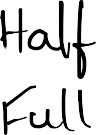 Half
Full